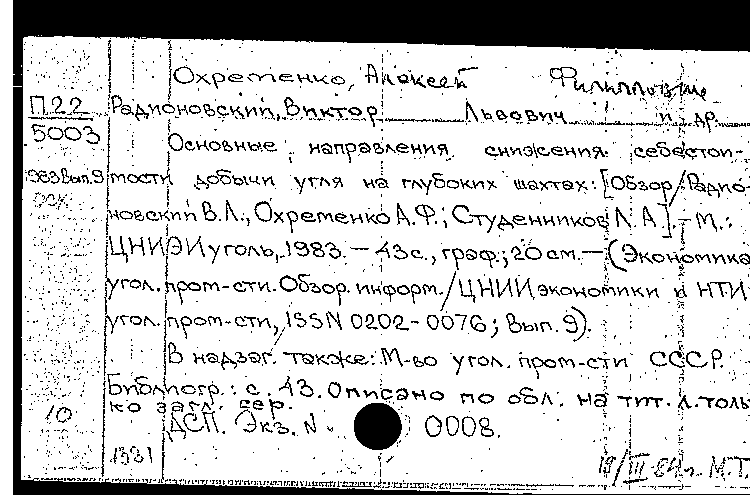 Охременко, Алексей Филиппович
П22 Радионовский, Виктор Львович и др.
5003 Основные направления снижения себестои-
983 вып.9 мости добычи угля на глубоких шахтах: [Обзор / Радио-
новский В.Л., Охременко А.Ф., Студенников Л.А.]. - М.:
ЦНИЭИуголь, 1983. - 43с., граф.; 20см. - (Экономика
угол. пром-сти. Обзор. информ. / ЦНИИ экономики и НТИ
угол. пром-сти, ISSN 0202-0076; Вып. 9).
В надзаг. также: М-во угол. пром-сти СССР.
Библиогр.: с. 43. Описано по обл.: на тит. л. толь-
ко загл. сер.
10 ДСП. Экз. N 0008.
1331 19/III-84г. М.Т.